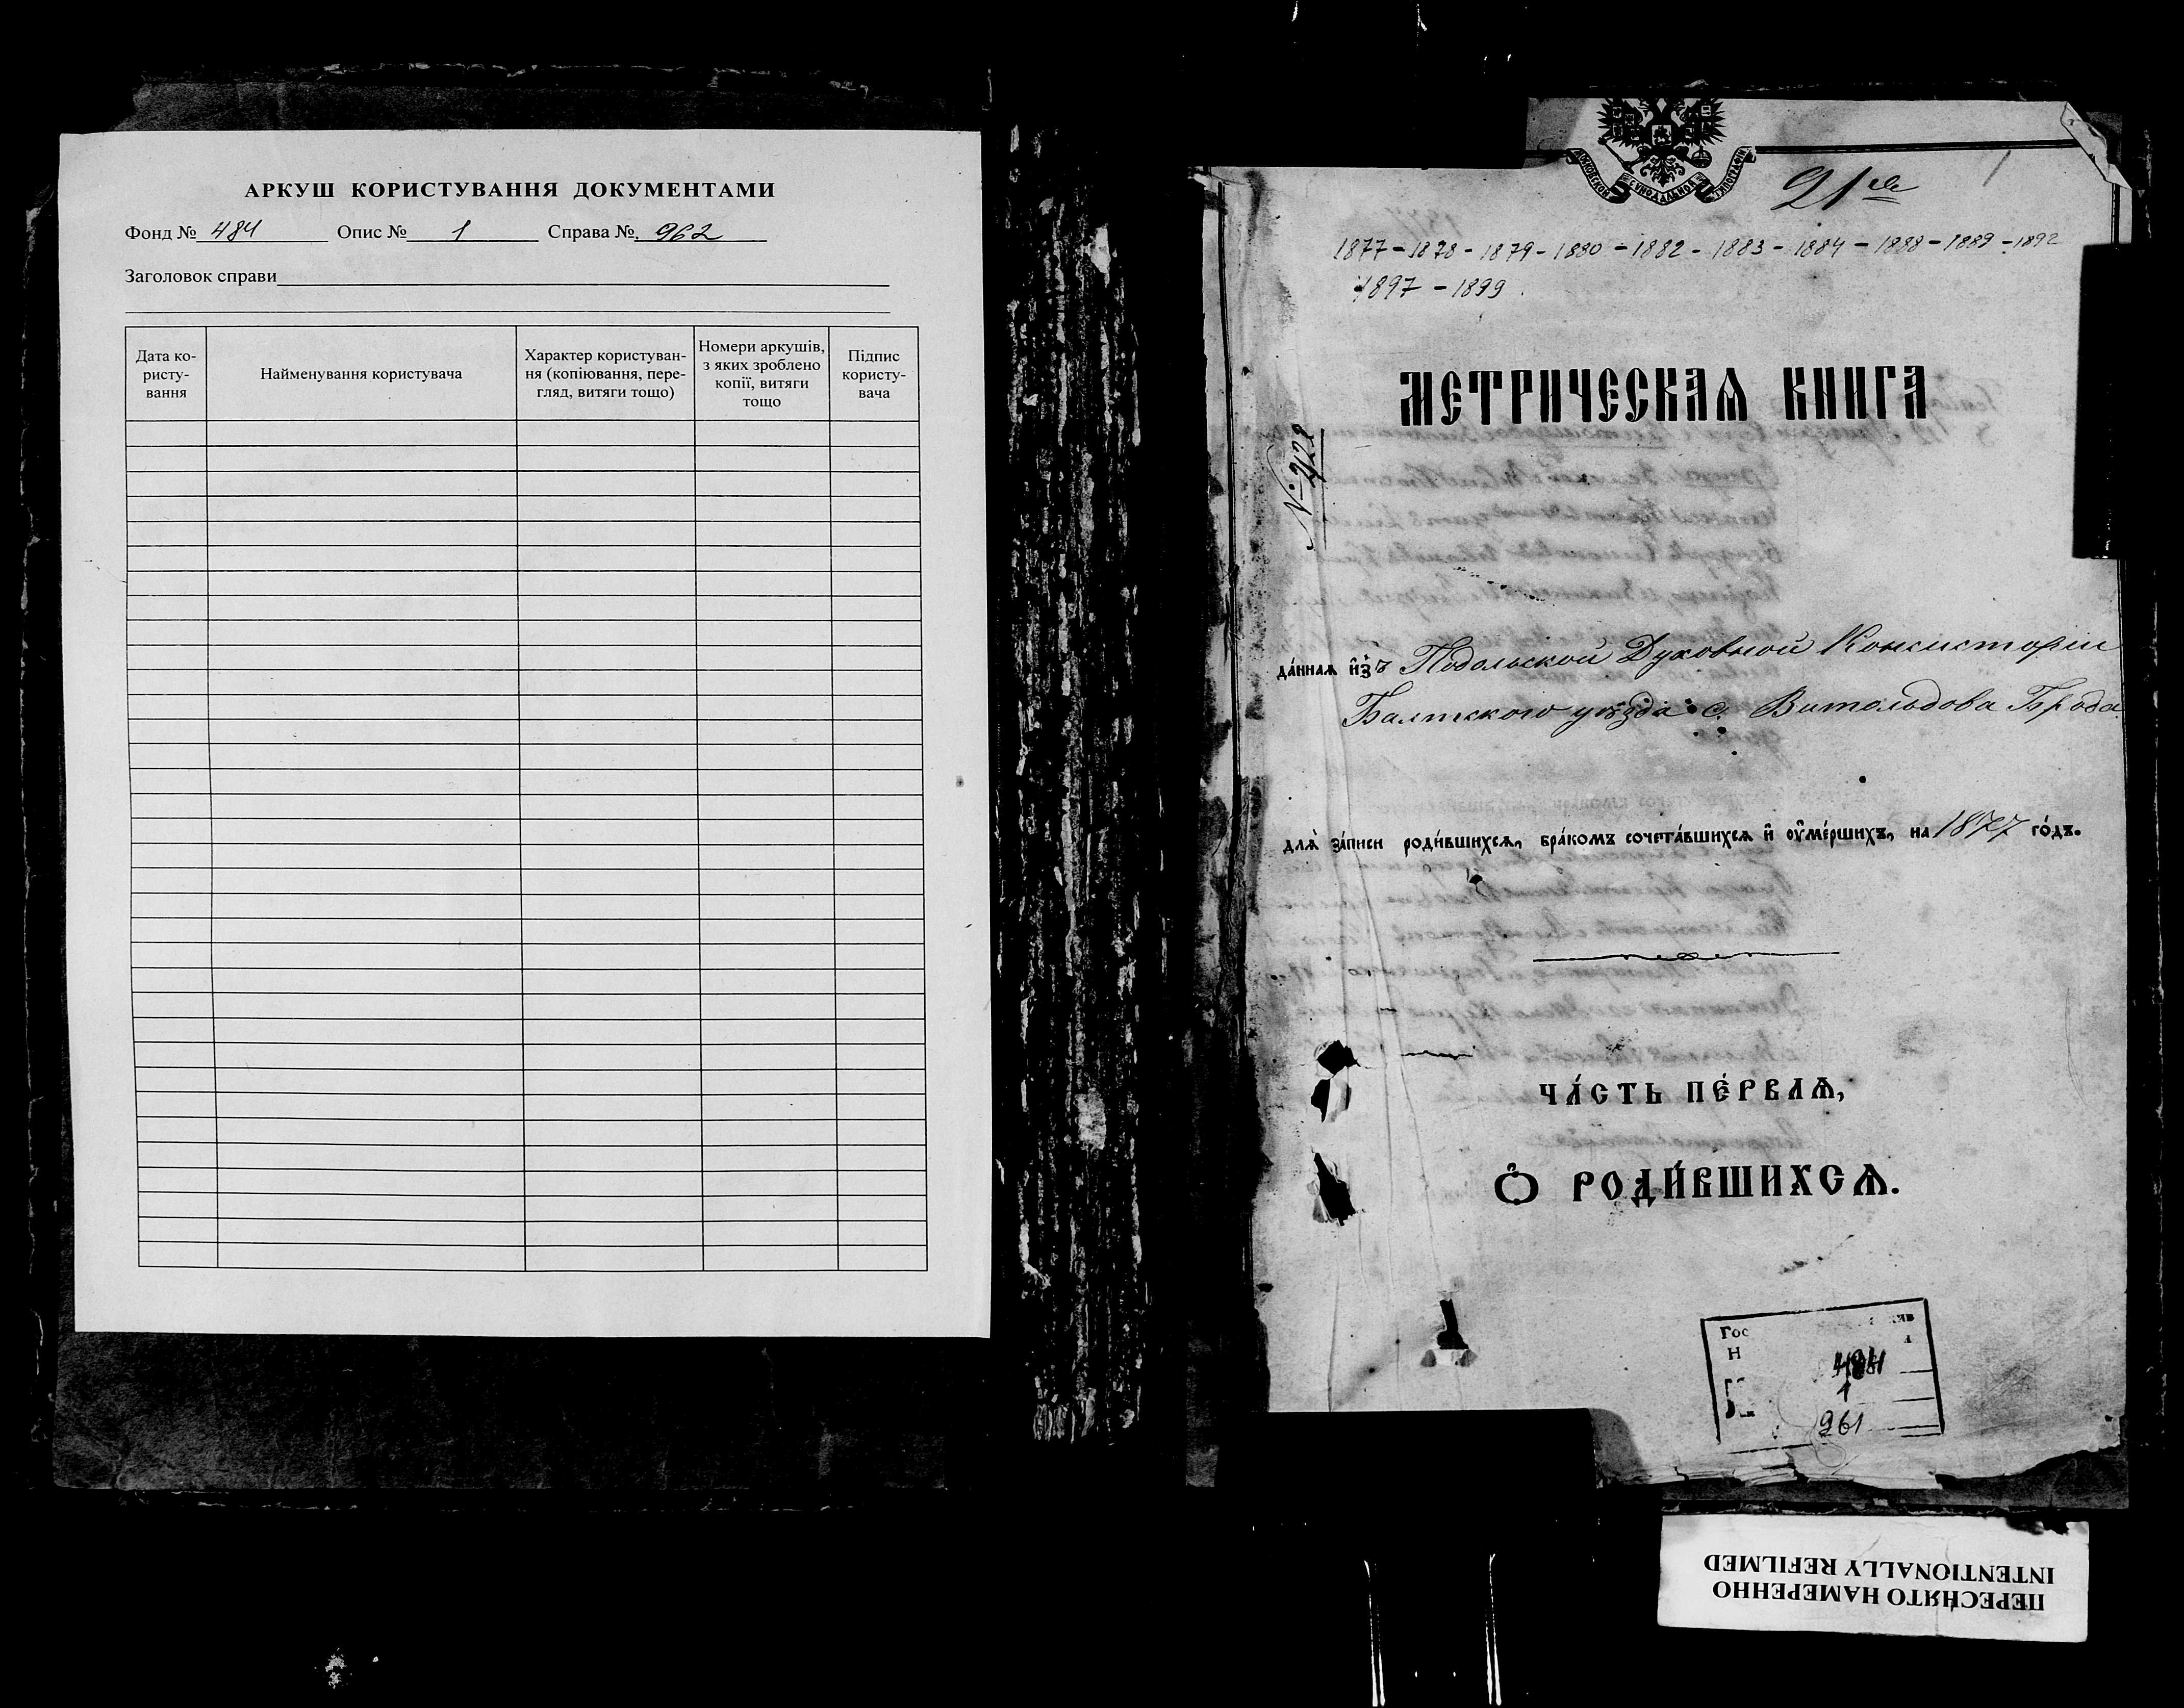 АРКУШ КОРИСТУВАННЯ ДОКУМЕНТАМИ
Фонд № 484 Опис № 1 Справа № 962
Заголовок справи
Дата ко-
ристу-
вання
Найменування користувача
Характер користуван-
ня (копіювання, пере-
гляд, витяги тощо)
Номери аркушів,
з яких зроблено
копії, витяги
тощо
Підпис
користу-
вача
МОСКОВСКОЙ СѴНОДАЛЬНОЙ ТИПОГРАФІИ
1
1877 - 1878 - 1879 - 1880 - 1882 - 1883 - 1884 - 1888 - 1889 - 1892
1897 - 1899
МЕТРИЧЕСКАѦ КНИГА
да́нная и҆зъ Подольской Духовной Консисторіи
Балтского уѣзда с. Витольдова Брода
для̀ за́писи роди́вшихсѧ, бра́комъ сочета́вшихсѧ и҆ ᲂу҆ме́ршихъ, на 1877 го́дъ.
ЧА́СТЬ ПЕ́РВАѦ,
Ѽ РОДИ́ВШИХСѦ.
Гос
Н
484
1
961
ПЕРЕСНЯТО НАМЕРЕННО
INTENTIONALLY REFILMED